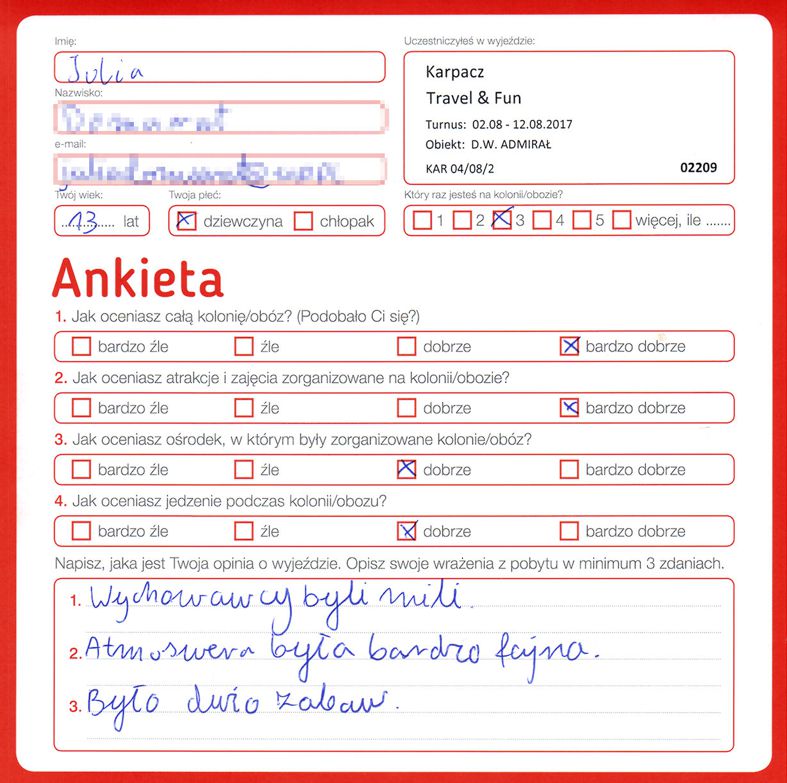 Imię:
Julia
Nazwisko:
e-mail:
Twój wiek:
13 lat
Twoja płeć:
dziewczyna chłopak
Uczestniczyłeś w wyjeździe:
Karpacz
Travel & Fun
Turnus: 02.08 - 12.08.2017
Obiekt: D.W. ADMIRAŁ
KAR 04/08/2 02209
Który raz jesteś na kolonii/obozie?
1 2 3 4 5 więcej, ile .......
Ankieta
1. Jak oceniasz całą kolonię/obóz? (Podobało Ci się?)
bardzo źle źle dobrze bardzo dobrze
2. Jak oceniasz atrakcje i zajęcia zorganizowane na kolonii/obozie?
bardzo źle źle dobrze bardzo dobrze
3. Jak oceniasz ośrodek, w którym były zorganizowane kolonie/obóz?
bardzo źle źle dobrze bardzo dobrze
4. Jak oceniasz jedzenie podczas kolonii/obozu?
bardzo źle źle dobrze bardzo dobrze
Napisz, jaka jest Twoja opinia o wyjeździe. Opisz swoje wrażenia z pobytu w minimum 3 zdaniach.
1. Wychowawcy byli mili.
2. Atmoswera była bardzo fajna.
3. Było dużo zabaw.